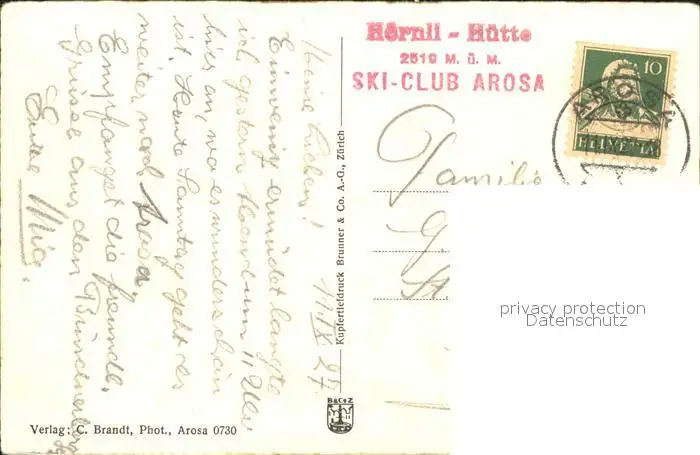 Hörnli - Hütte
2519 M. ü. M.
SKI-CLUB AROSA
10
AROSA
HELVETIA
Familie
privacy protection
Datenschutz
Kupfertiefdruck Brunner & Co. A.-G., Zürich
B&Co Z
Verlag: C. Brandt, Phot., Arosa 0730
11. IX. 27.
Meine Lieben!
Ein wenig ermüdet langte
ich gestern Abend um 11 Uhr
hier an, wo es wunderschön
ist. Heute Samstag geht es
weiter nach Arosa.
Empfanget die freundl.
Grüsse aus den Bündnerberg
Eure